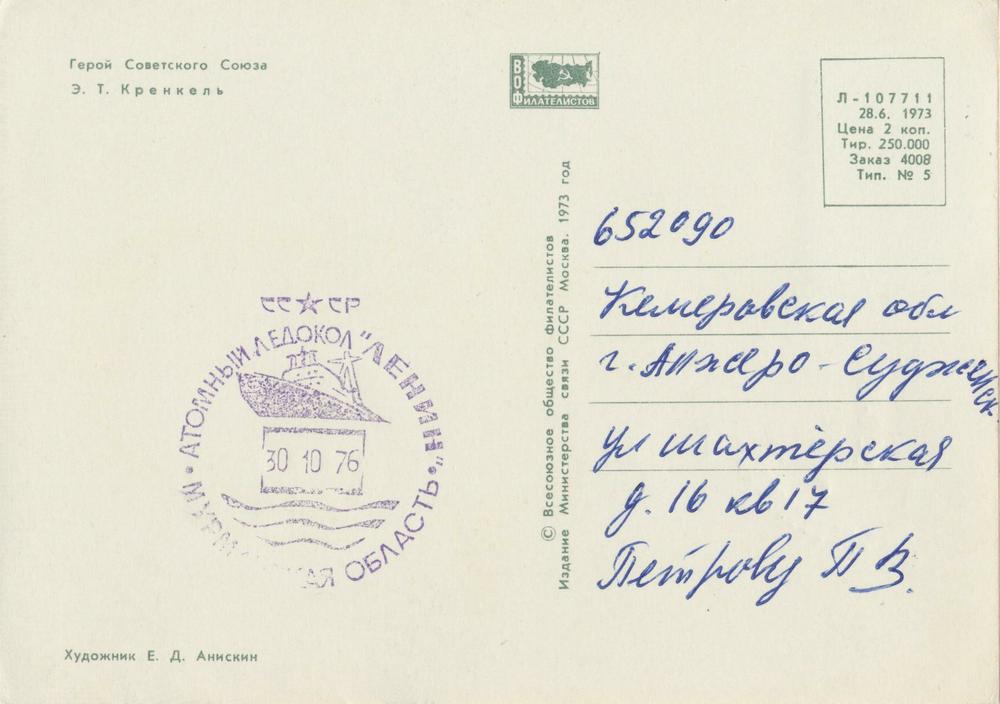 Герой Советского Союза
Э. Т. Кренкель
ВОФ
ФИЛАТЕЛИСТОВ
Л-107711
28.6. 1973
Цена 2 коп.
Тир. 250.000
Заказ 4008
Тип. № 5
© Всесоюзное общество филателистов
Издание Министерства связи СССР Москва. 1973 год
652090
Кемеровская обл
г. Анжеро-Судженск
ул шахтёрская
д. 16 кв 17
Петрову П В.
СС☆СР
АТОМНЫЙ ЛЕДОКОЛ "ЛЕНИН"
30 10 76
ОБЛАСТЬ
Художник Е. Д. Анискин